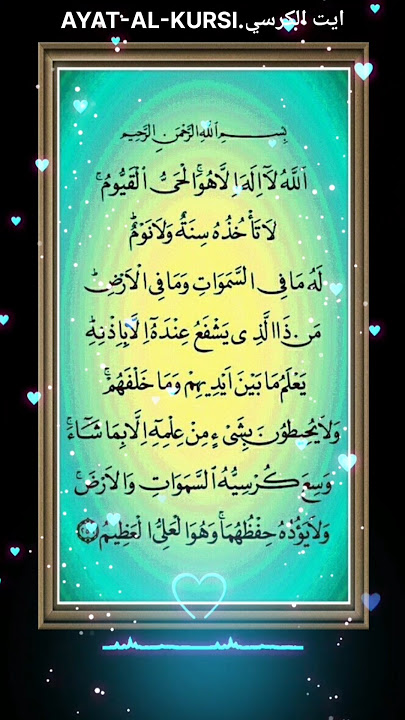 AYAT-AL-KURSI.ایت الکرسي
بِسْمِ اللهِ الرَّحْمٰنِ الرَّحِيْمِ
اَللّٰهُ لَآ اِلٰهَ اِلَّا هُوَۚ اَلْحَىُّ الْقَيُّوْمُ ۚ
لَا تَاْخُذُهٗ سِنَةٌ وَّلَا نَوْمٌ ؕ
لَهٗ مَا فِى السَّمٰوَاتِ وَمَا فِى الْاَرْضِ ؕ
مَنْ ذَا الَّذِىْ يَشْفَعُ عِنْدَهٗٓ اِلَّا بِاِذْنِهٖ ؕ
يَعْلَمُ مَا بَيْنَ اَيْدِيْهِمْ وَمَا خَلْفَهُمْ ۚ
وَلَا يُحِيْطُوْنَ بِشَىْءٍ مِّنْ عِلْمِهٖٓ اِلَّا بِمَا شَآءَ ۚ
وَسِعَ كُرْسِيُّهُ السَّمٰوَاتِ وَالْاَرْضَ ۚ
وَلَا يَـُٔوْدُهٗ حِفْظُهُمَا ۚ وَهُوَ الْعَلِىُّ الْعَظِيْمُ